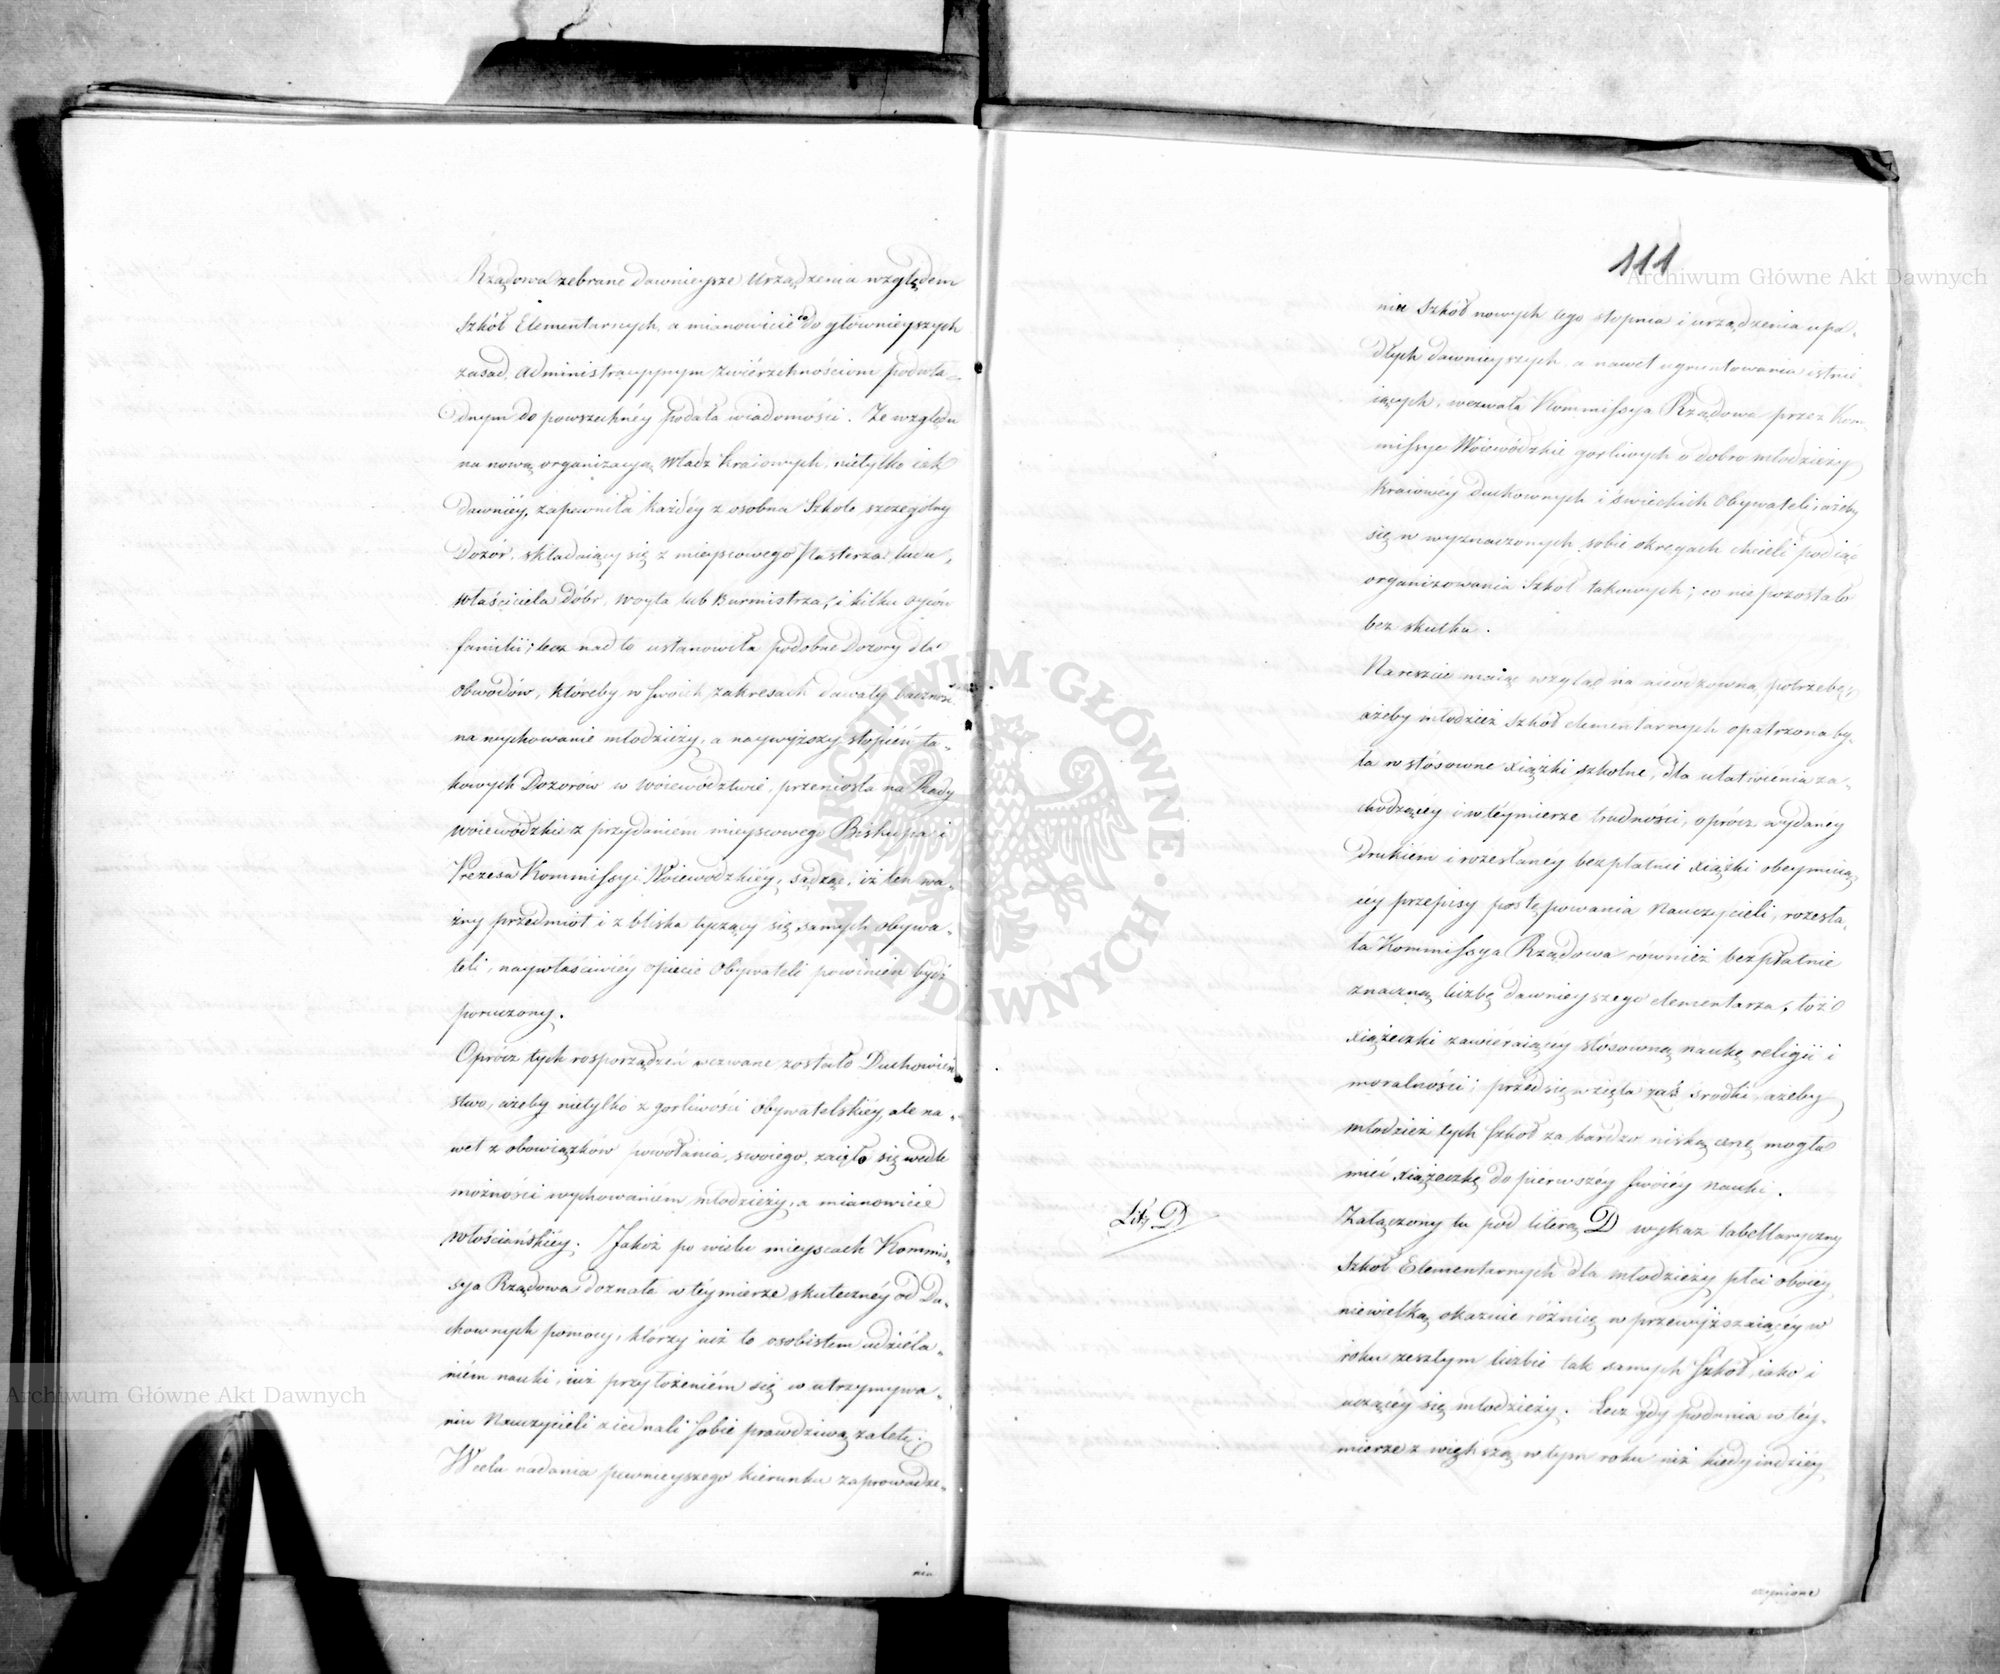 Rządowa zebrane dawnieysze urządzenia względem
Szkół Elementarnych, a mianowicie co do główniejszych
zasad, Administracyynym zwierzchnościom podwła-
dnym do powszechnéy podała wiadomości. Ze względu
na nową organizacyą Władz Kraiowych, nietylko iak
dawniéy, zapewniła każdéy z osobna Szkole szczególny
Dozór, składaiący się z mieyscowego Pasterza ludu,
właściciela dóbr, woyta lub Burmistrza, i kilku oyców
familii; lecz nadto ustanowiła podobne Dozory dla
obwodów, któreby w swoich zakresach dawały baczność
na wychowanie młodzieży, a naywyższy stopień ta-
kowych Dozorów w woiewództwie, przeniosła na Rady
woiewódzkie z przydaniem mieyscowego Biskupa i
Prezesa Kommissyi Woiewódzkiéy, sądząc, iż ten wa-
żny przedmiot i z bliska tyczący się samych obywa-
teli, naywłaściwiéy opiece Obywateli powinien bydź
poruczony.
Oprócz tych rosporządzeń wezwane zostało Duchowień-
stwo, ażeby nietylko z gorliwości obywatelskiéy, ale na-
wet z obowiązków powołania swoiego, zaięło się wedle
możności wychowaniem młodzieży, a mianowicie
włościańskiéy. Jakoż po wielu mieyscach Kommis-
sya Rządowa doznała w téy mierze skutecznéy od Du-
chownych pomocy, którzy iuż to osobistem udziela-
niem nauki, iuż przyłożeniem się w utrzymywa-
niu Nauczycieli ziednali sobie prawdziwą zaletę.
W celu nadania pewnieyszego kierunku zaprowadze-
nia
111
nia Szkół nowych tego stopnia i urządzenia upa-
dłych dawnieyszych, a nawet ugruntowania istnie-
iących, wezwała Kommissya Rządowa przez Kom-
missye Woiewódzkie gorliwych o dobro młodzieży
kraiowéy duchownych i świeckich Obywateli, ażeby
się w wyznaczonych sobie okręgach chcieli podiąć
organizowania Szkół takowych; co nie pozostało
bez skutku.
Nareszcie maiąc wzgląd na nieodzowną potrzebę,
ażeby młodzież Szkół elementarnych opatrzona by-
ła w stósowne xiążki szkolne, dla ułatwienia za-
chodzącéy i w téy mierze trudności, oprócz wydanéy
drukiem i rozesłanéy bezpłatnie xiążki obeymuią-
céy przepisy postępowania Nauczycieli, rozesła-
ła Kommissya Rządowa również bezpłatnie
znaczną liczbę dawnieyszego elementarza, toż
xiążeczki zawieraiącéy stósowną naukę religii i
moralności; przedsięwzięła zaś środki, ażeby
młodzież tych Szkół za bardzo niską cenę mogła
mieć xiążeczkę do pierwszéy swoiéy nauki.
Lit. D
Załączony tu pod literą D wykaz tabellaryczny
Szkół Elementarnych dla młodzieży płci oboiéy
niewielką okazuie różnicę w przewyższaiącéy w
roku zeszłym liczbie tak samych Szkół, iako i
uczącéy się młodzieży. Lecz gdy podania w téy-
mierze z większą w tym roku niż kiedy indziéy
czynione
Archiwum Główne Akt Dawnych
Archiwum Główne Akt Dawnych
ARCHIWUM GŁÓWNE AKT DAWNYCH